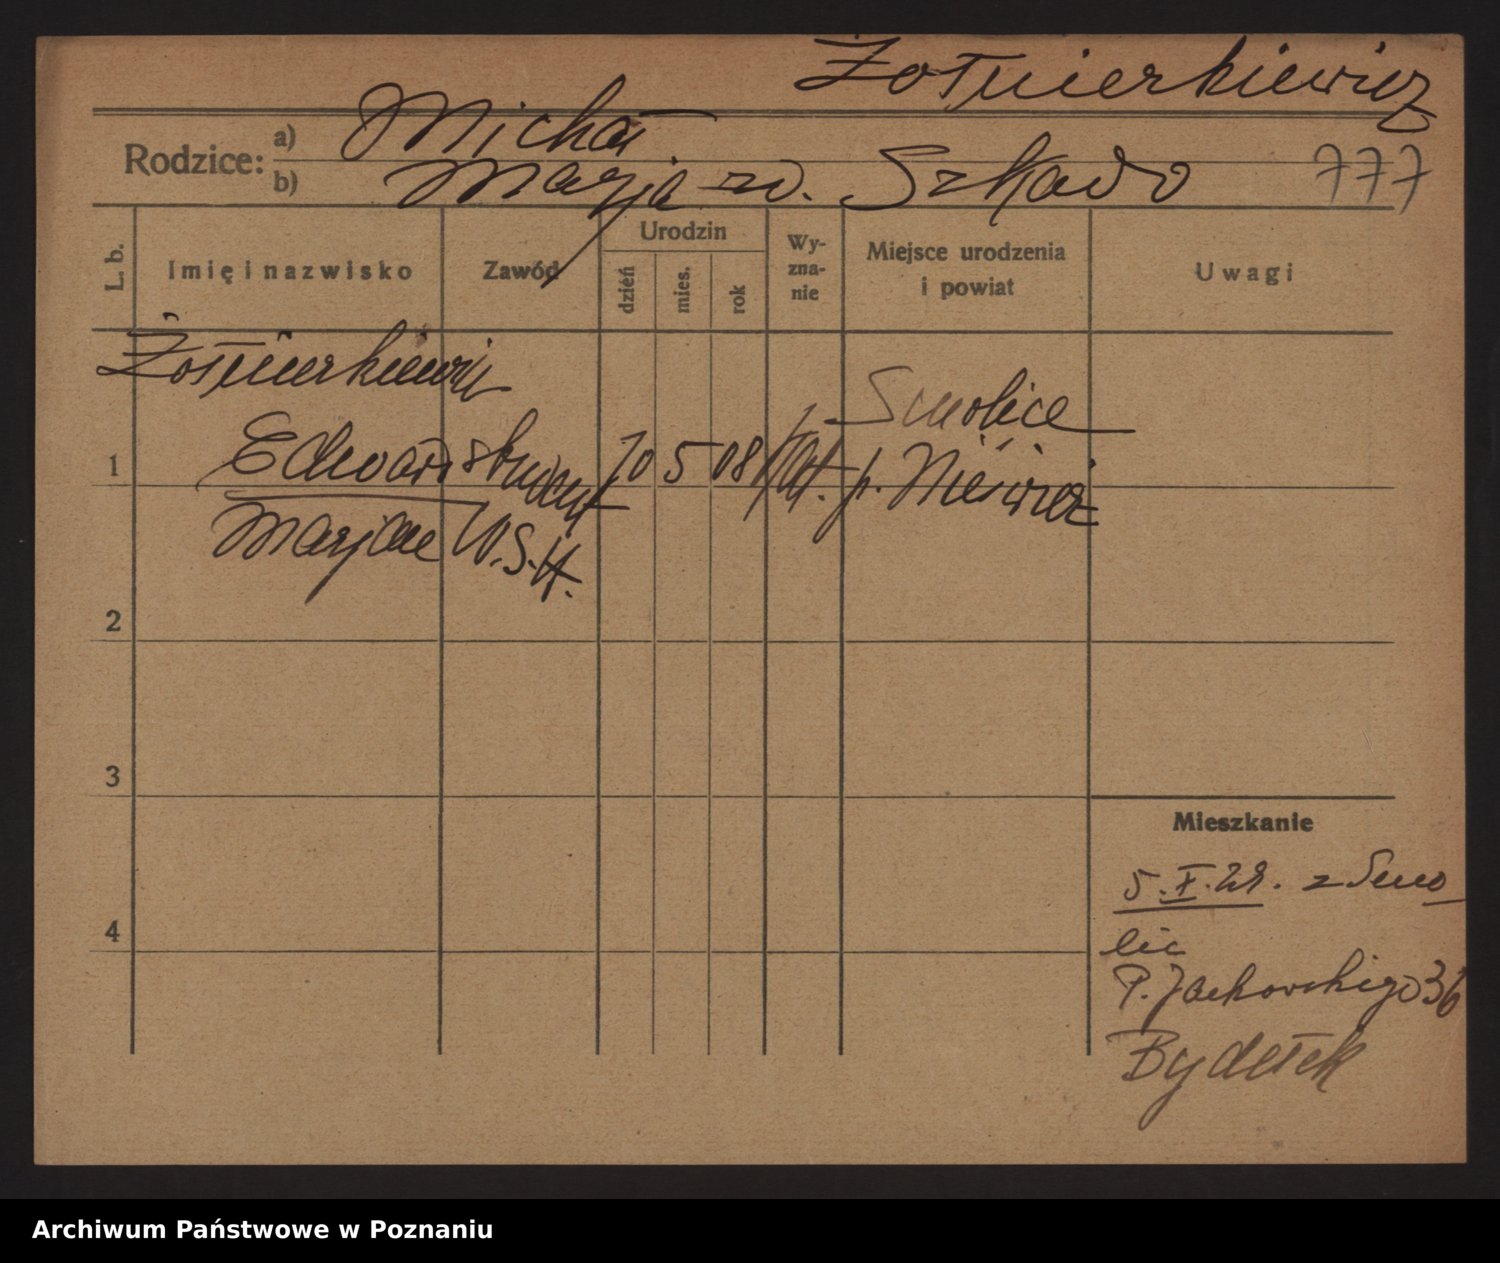 Żołnierkiewicz
Rodzice: a) Michał
b) Marja zd. Szkado 777
L. b. Imię i nazwisko Zawód Urodzin dzień mies. rok Wy-zna-nie Miejsce urodzenia i powiat Uwagi
Żołnierkiewicz
Smolice
1 Edward student 20 5 08 kat. p. Nieśwież
Marjan W.S.H.
2
3
Mieszkanie
5.X.28. z Smo
4
lic
P. Jackowskiego 36
Bydełek
Archiwum Państwowe w Poznaniu